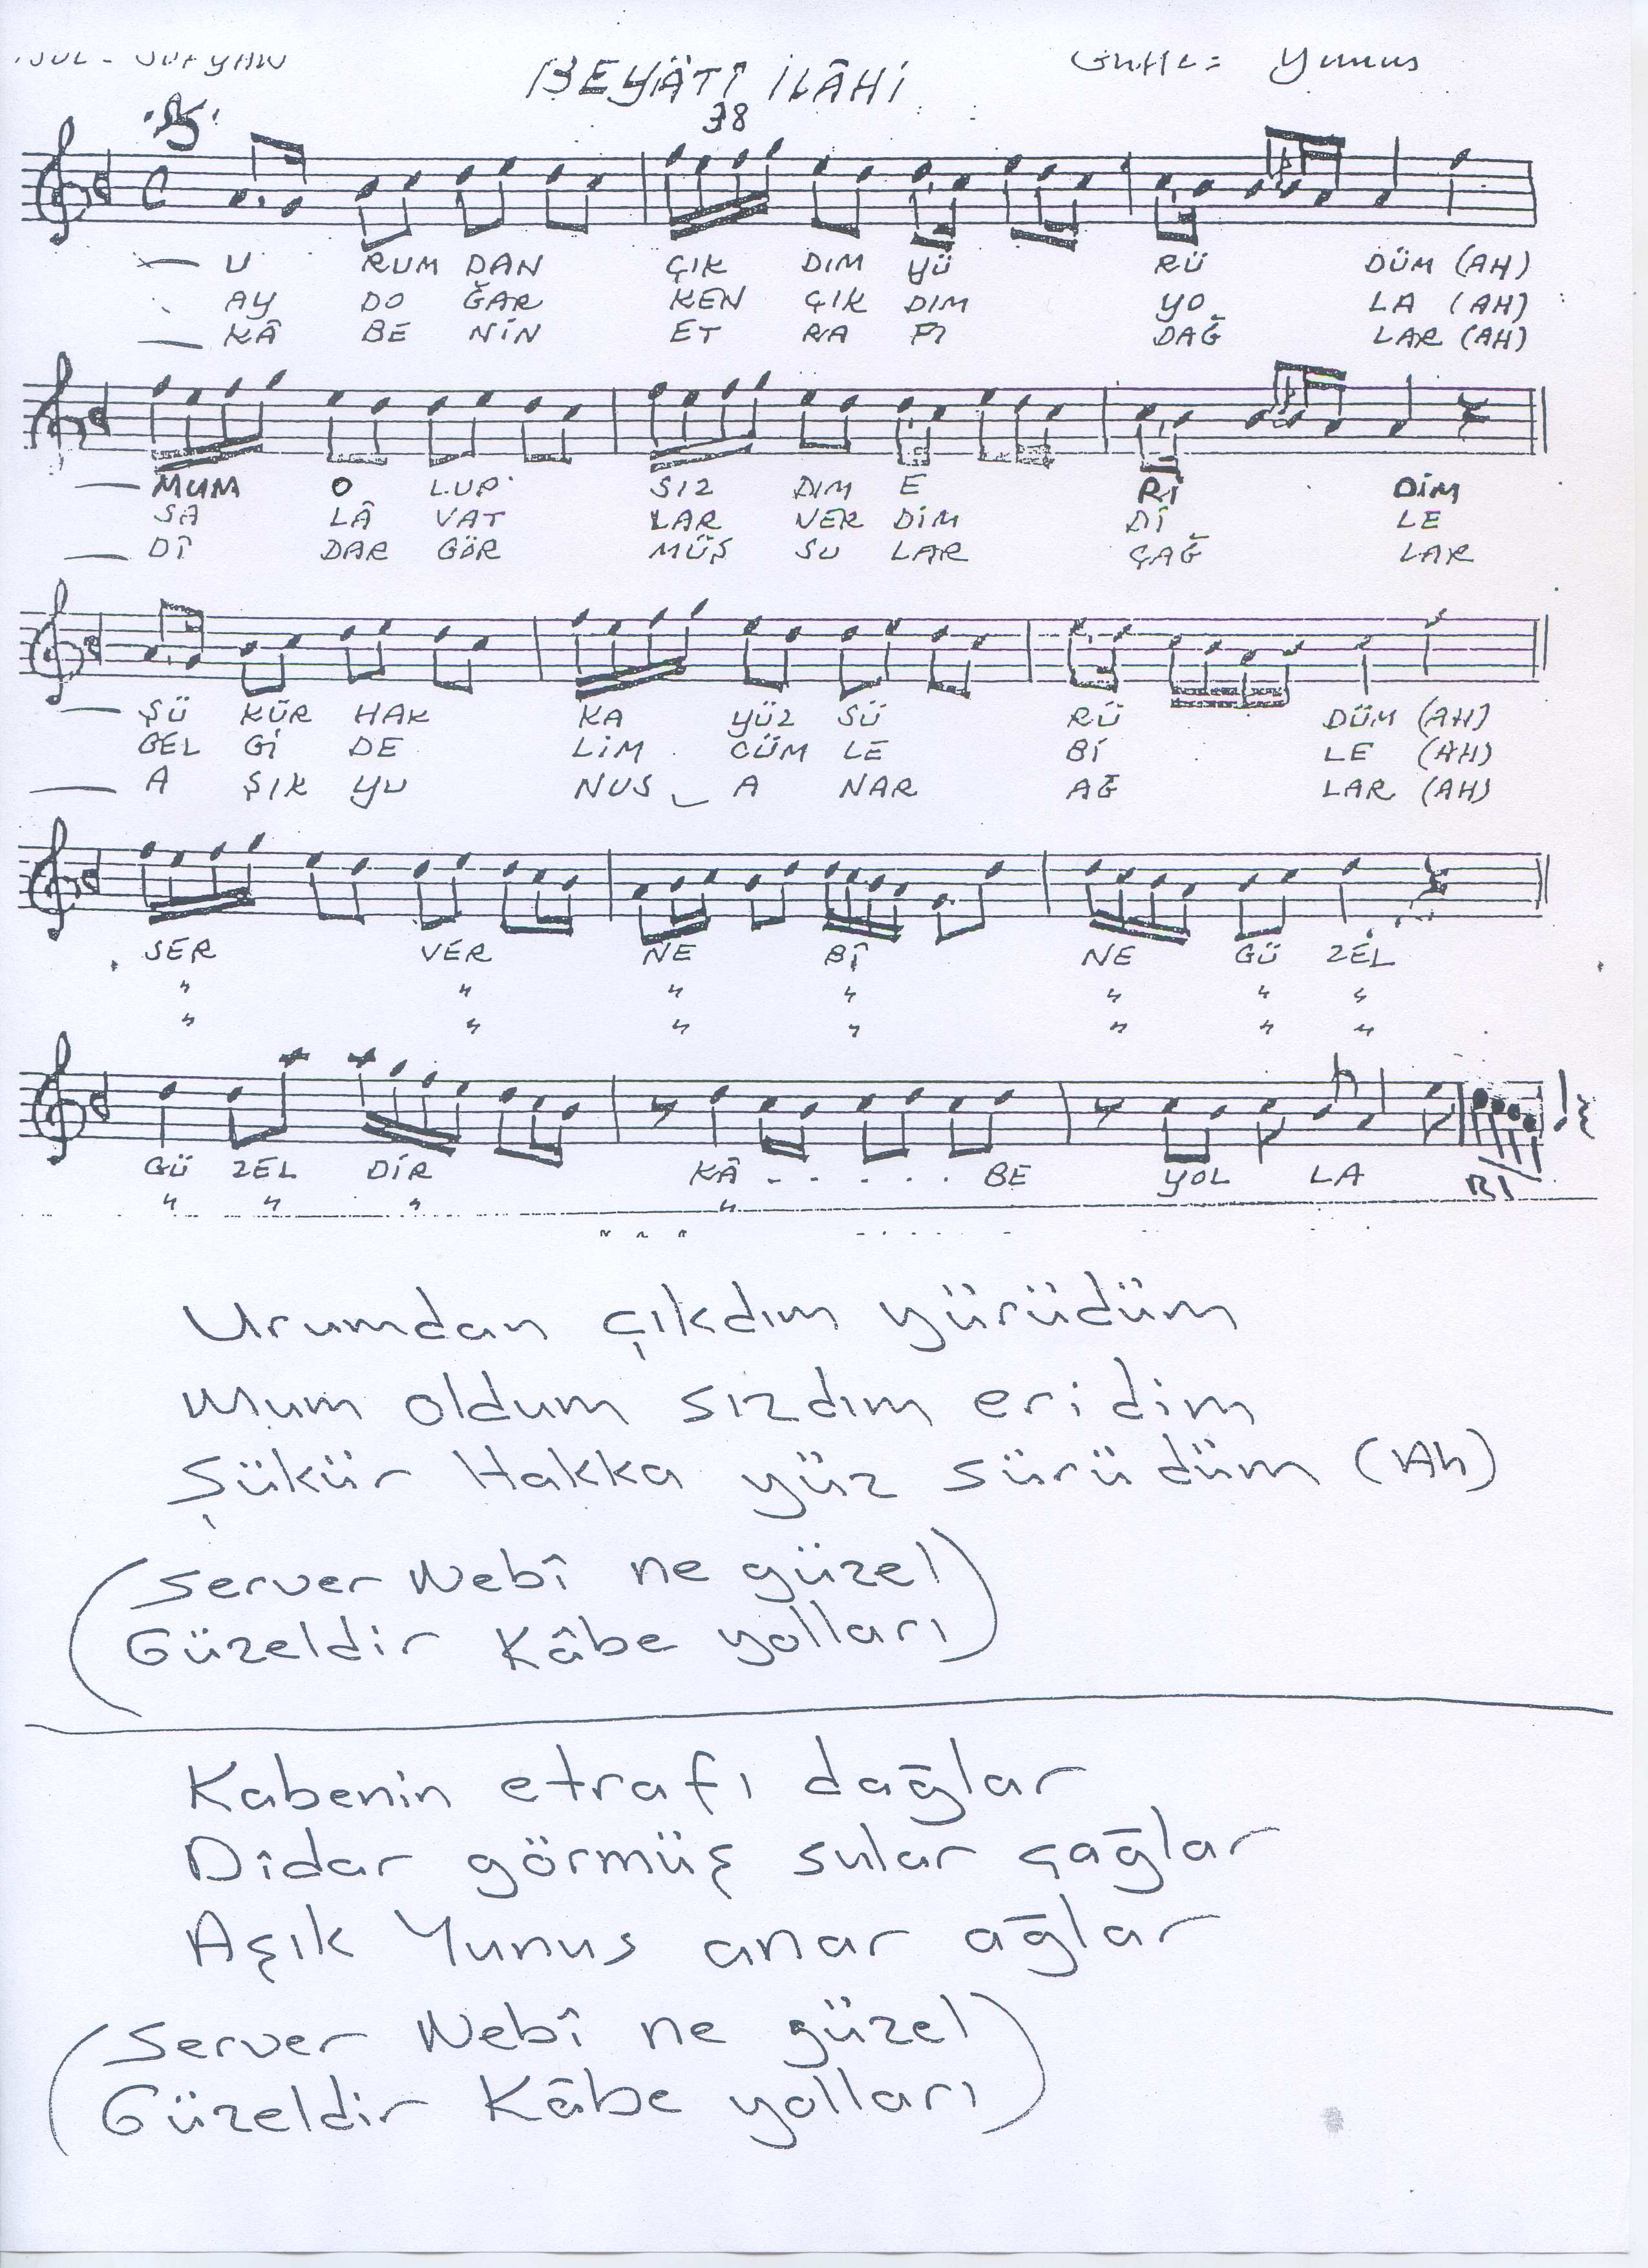 USUL - SOFYAN
BEYÂTÎ İLÂHİ
Güfte: Yunus
38
U RUM DAN ÇIK DIM YÜ RÜ DÜM (AH)
AY DO ĞAR KEN ÇIK DIM YO LA (AH)
KÂ BE NİN ET RA FI DAĞ LAR (AH)
MUM O LUP SIZ DIM E Rİ DİM
SA LÂ VAT LAR VER DİM DÎ LE
DÎ DAR GÖR MÜŞ SU LAR ÇAĞ LAR
ŞÜ KÜR HAK KA YÜZ SÜ RÜ DÜM (AH)
GEL Gİ DE LİM CÜM LE Bİ LE (AH)
A ŞIK YU NUS A NAR AĞ LAR (AH)
SER VER NE BÎ NE GÜ ZEL
" " " " " " "
" " " " " " "
GÜ ZEL DİR KÂ - . . . . . BE YOL LA RI
" " " "
Urumdan çıkdım yürüdüm
Mum oldum sızdım eridim
Şükür Hakka yüz sürüdüm (Ah)
(Server Nebî ne güzel
Güzeldir Kâbe yolları)
Kabenin etrafı dağlar
Dîdar görmüş sular çağlar
Aşık Yunus anar ağlar
(Server Nebî ne güzel
Güzeldir Kâbe yolları)